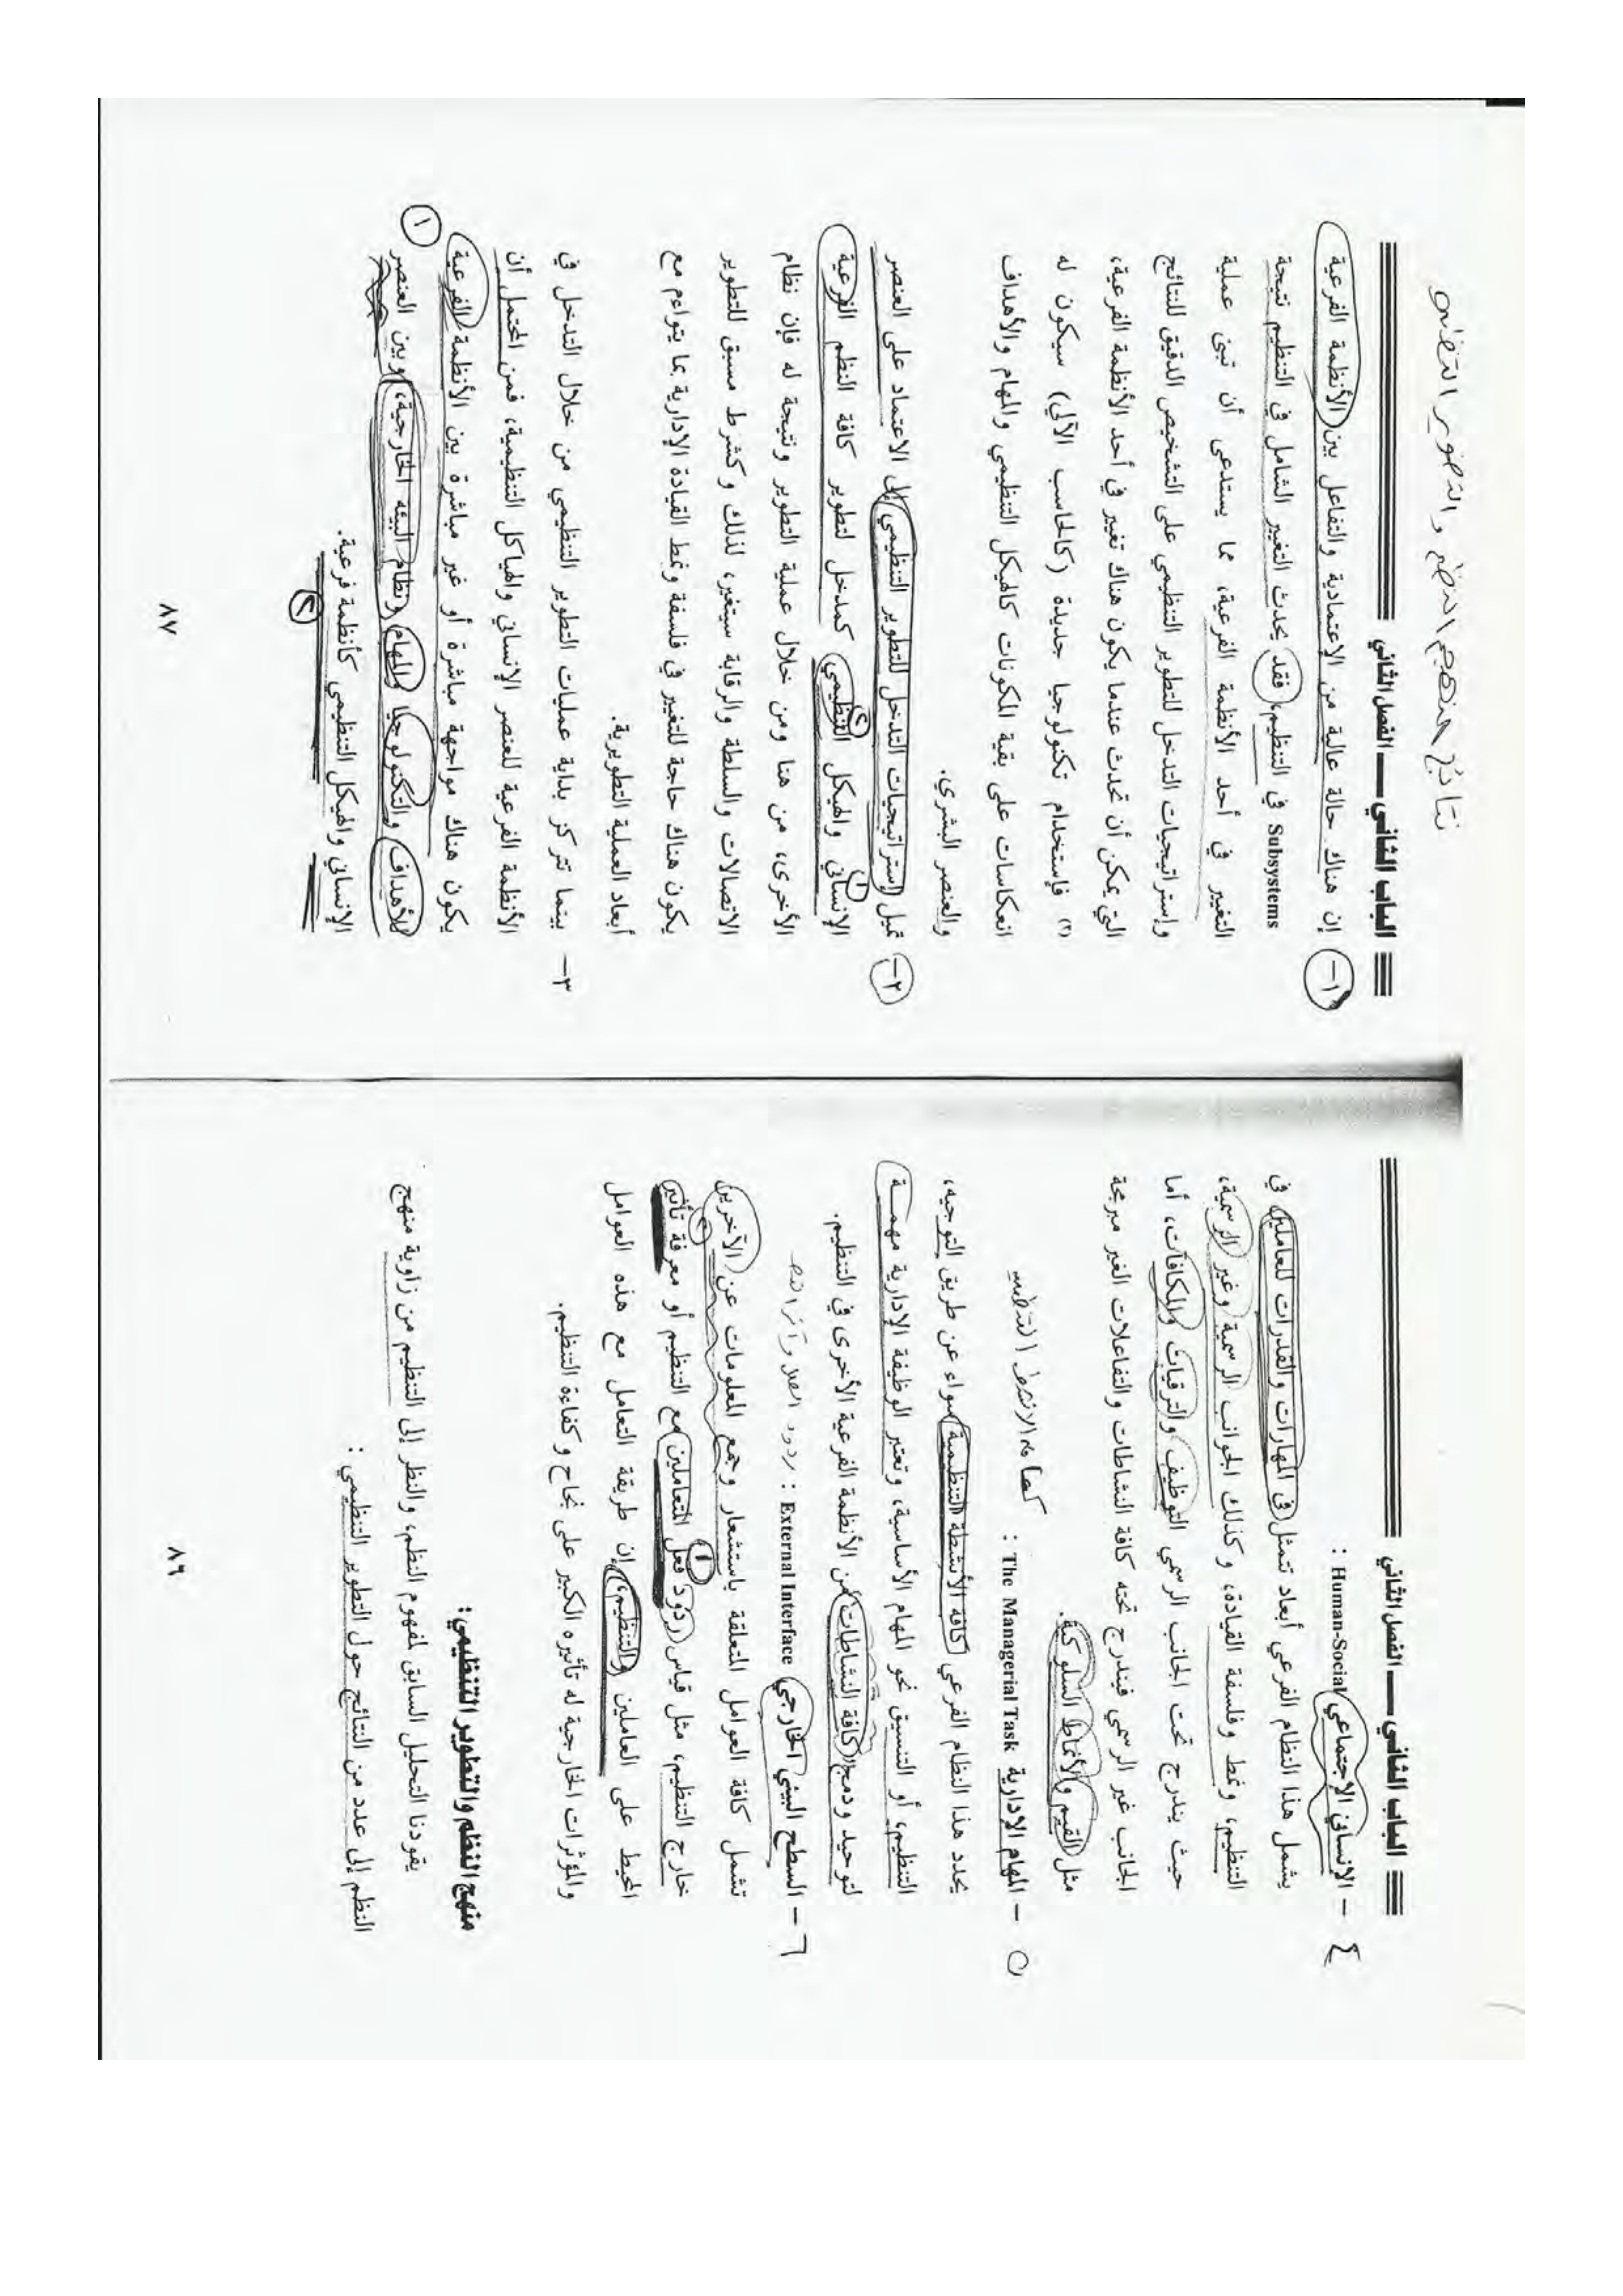 الباب الثاني — الفصل الثاني
٤ - الإنساني الإجتماعي Human-Social :
يشمل هذا النظام الفرعي أبعاد تتمثل في المهارات والقدرات للعاملين في
التنظيم، ونمط وفلسفة القيادة، وكذلك الجوانب الرسمية وغير الرسمية،
حيث يندرج تحت الجانب الرسمي التوظيف والترقيات والمكافآت، أما
الجانب غير الرسمي فيندرج تحته كافة النشاطات والتفاعلات الغير مبرمجة
مثل القيم والأنماط السلوكية.
٥ - المهام الإدارية The Managerial Task : كافة الانشطة التنظيمية
يحدد هذا النظام الفرعي كافة الأنشطة التنظيمية سواء عن طريق التوجيه،
التنظيم، أو التنسيق نحو المهام الأساسية، وتعتبر الوظيفة الإدارية مهمـــة
لتوحيد ودمج كافة النشاطات من الأنظمة الفرعية الأخرى في التنظيم.
٦ - السطح البيئي الخارجي External Interface : ردود
تشمل كافة العوامل المتعلقة باستشعار وجمع المعلومات عن الآخرين
خارج التنظيم، مثل قياس ردود فعل المتعاملين مع التنظيم أو معرفة تأثير
المحيط على العاملين والتنظيم، إن طريقة التعامل مع هذه العوامل
والمؤثرات الخارجية له تأثيره الكبير على نجاح وكفاءة التنظيم.
منهج النظم والتطوير التنظيمي:
يقودنا التحليل السابق لمفهوم النظم، والنظر إلى التنظيم من زاوية منهج
النظم إلى عدد من النتائج حول التطوير التنظيمي :
٨٦
نتائج منهج النظم والتطوير التنظيمي
الباب الثاني — الفصل الثاني
١- إن هناك حالة عالية من الإعتمادية والتفاعل بين الأنظمة الفرعية
Subsystems في التنظيم، فقد يحدث التغيير الشامل في التنظيم نتيجة
التغيير في أحد الأنظمة الفرعية، مما يستدعى أن تبنى عملية
وإستراتيجيات التدخل للتطوير التنظيمي على التشخيص الدقيق للنتائج
التي يمكن أن تحدث عندما يكون هناك تغيير في أحد الأنظمة الفرعية،
(٢) فإستخدام تكنولوجيا جديدة (كالحاسب الآلي) سيكون له
انعكاسات على بقية المكونات كالهيكل التنظيمي والمهام والأهداف
والعنصر البشري.
٢- تميل إستراتيجيات التدخل للتطوير التنظيمي إلى الاعتماد على العنصر
الإنساني ١ والهيكل التنظيمي ٢ كمدخل لتطوير كافة النظم الفرعية
الأخرى، من هنا ومن خلال عملية التطوير ونتيجة له فإن نظام
الاتصالات والسلطة والرقابة سيتغير، لذلك وكشرط مسبق للتطوير
يكون هناك حاجة للتغيير في فلسفة ونمط القيادة الإدارية بما يتواءم مع
أبعاد العملية التطويرية.
٣- بينما تتركز بداية عمليات التطوير التنظيمي من خلال التدخل في
الأنظمة الفرعية للعنصر الإنساني والهياكل التنظيمية، فمن المحتمل أن
يكون هناك مواجهة مباشرة أو غير مباشرة بين الأنظمة الفرعية
للأهداف والتكنولوجيا والمهام ونظام البيئه الخارجية، وبين العنصر ١
الإنساني والهيكل التنظيمي كأنظمة فرعية.
٢
٨٧